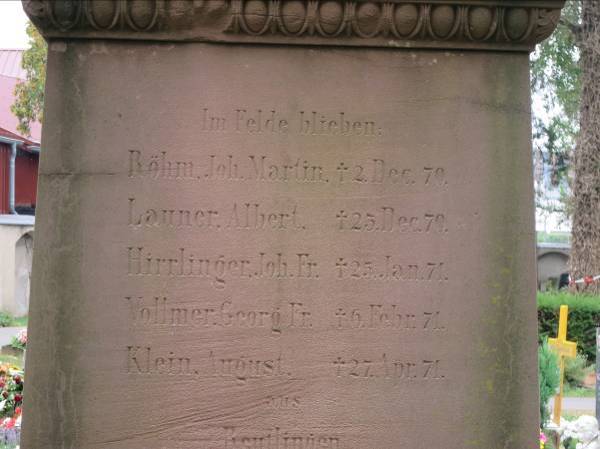 Im Felde blieben:
Röhm, Joh. Martin. † 2. Dec. 70.
Launer, Albert. † 25. Dec. 70.
Hirrlinger, Joh. Fr. † 25. Jan. 71.
Vollmer, Georg Fr. † 6. Febr. 71.
Klein, August. † 27. Apr. 71.
aus
Reutlingen